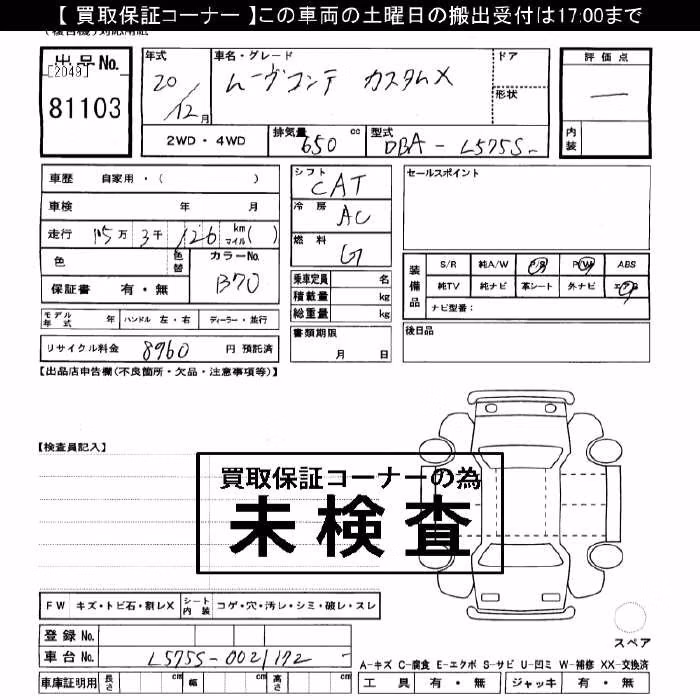 【 買取保証コーナー 】この車両の土曜日の搬出受付は17:00まで
出品No.
[2049]
81103
年式 20/12月
車名・グレード ムーヴコンテ カスタムX
ドア
形状
評価点
—
内装
2WD・4WD
排気量 650 cc
型式 DBA-L575S-
車歴 自家用・( )
車検 年 月
走行 万 3千 126 km マイル( )
色
色替
カラーNo. B70
保証書 有・無
モデル年式 年
ハンドル 左・右
ディーラー・並行
リサイクル料金 8960 円 預託済
シフト CAT
冷房 AC
燃料 G
乗車定員 名
積載量 kg
総重量 kg
書類期限
月 日
セールスポイント
装備品
S/R 純A/W P/S P/W ABS
純TV 純ナビ 革シート 外ナビ エアB
ナビ型番:
後日品
【出品店申告欄(不良箇所・欠品・注意事項等)】
【検査員記入】
買取保証コーナーの為
未検査
FW キズ・トビ石・割レX
シート内装 コゲ・穴・汚レ・シミ・破レ・スレ
登録No.
車台No. L575S-0021172
車庫証明用 長さ cm 幅 cm 高さ cm
スペア
A-キズ C-腐食 E-エクボ S-サビ U-凹ミ W-補修 XX-交換済
工具 有・無 ジャッキ 有・無